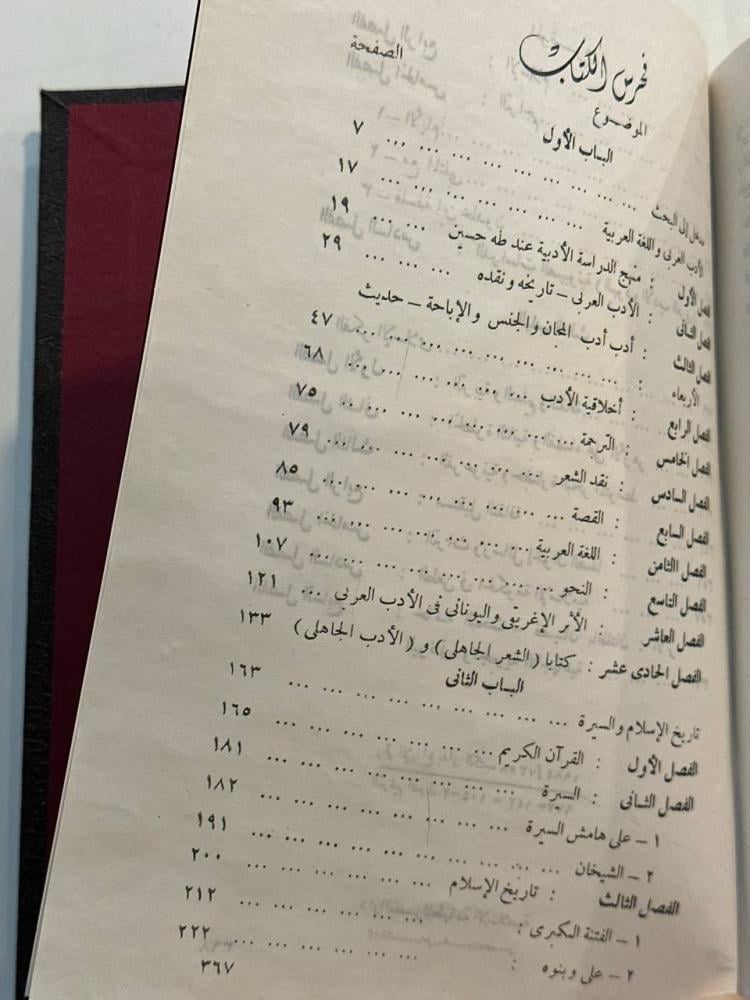 فهرس الكتاب
الموضوع الصفحة
الباب الأول
مدخل إلى البحث ... ... ... ... ... ... ... ... ٧
الأدب العربى واللغة العربية ... ... ... ... ... ... ١٧
الفصل الأول : منهج الدراسة الأدبية عند طه حسين ... ... ١٩
الفصل الثانى : الأدب العربى – تاريخه ونقده ... ... ... ٢٩
الفصل الثالث : أدب أدب المجان والجنس والإباحة – حديث
الأربعاء : ... ... ... ... ... ... ... ... ٤٧
الفصل الرابع : أخلاقية الأدب ... ... ... ... ... ... ٦٨
الفصل الخامس : الترجمة ... ... ... ... ... ... ... ٧٥
الفصل السادس : نقد الشعر ... ... ... ... ... ... ... ٧٩
الفصل السابع : القصة ... ... ... ... ... ... ... ... ٨٥
الفصل الثامن : اللغة العربية ... ... ... ... ... ... ... ٩٣
الفصل التاسع : النحو ... ... ... ... ... ... ... ... ١٠٧
الفصل العاشر : الأثر الإغريقى واليونانى فى الأدب العربى ... ١٢١
الفصل الحادى عشر : كتابا (الشعر الجاهلى) و (الأدب الجاهلى) ١٣٣
الباب الثانى
تاريخ الإسلام والسيرة ... ... ... ... ... ... ... ١٦٣
الفصل الأول : القرآن الكريم ... ... ... ... ... ... ١٦٥
الفصل الثانى : السيرة ... ... ... ... ... ... ... ١٨١
١ – على هامش السيرة ... ... ... ... ... ... ... ١٨٢
٢ – الشيخان ... ... ... ... ... ... ... ... ١٩١
الفصل الثالث : تاريخ الإسلام ... ... ... ... ... ... ٢٠٠
١ – الفتنة الكبرى : ... ... ... ... ... ... ٢١٢
٢ – على وبنوه : ... ... ... ... ... ... ٢٢٢
٣٦٧